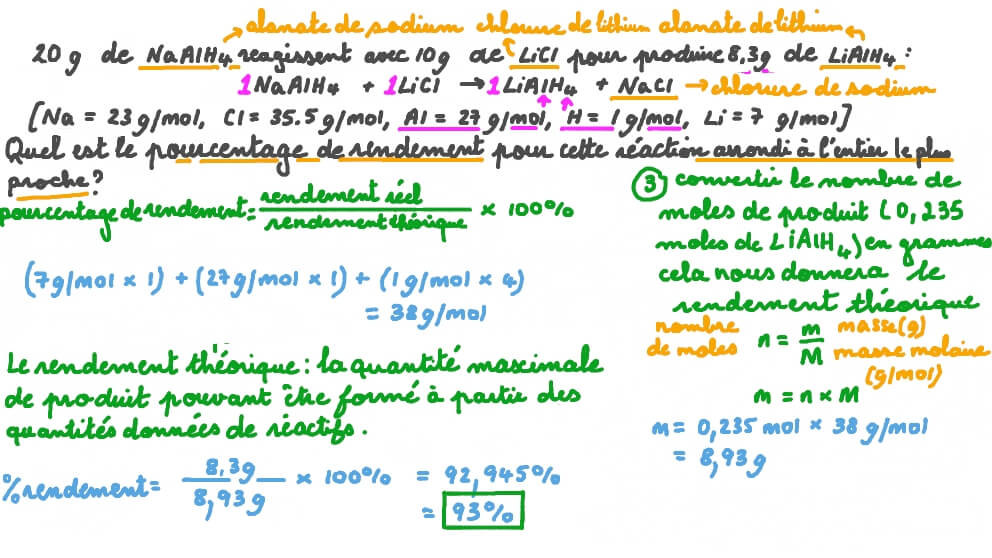 alanate de sodium chlorure de lithium alanate de lithium
20 g de NaAlH4 reagissent avec 10g de LiCl pour produire 8.3g de LiAlH4 :
1NaAlH4 + 1LiCl → 1LiAlH4 + NaCl → chlorure de sodium
[Na = 23 g/mol, Cl = 35.5 g/mol, Al = 27 g/mol, H = 1 g/mol, Li = 7 g/mol]
Quel est le pourcentage de rendement pour cette réaction arrondi à l'entier le plus
proche?
pourcentage de rendement = rendement réel / rendement théorique × 100%
(7g/mol × 1) + (27g/mol × 1) + (1g/mol × 4)
= 38g/mol
Le rendement théorique : la quantité maximale
de produit pouvant être formé à partir des
quantités données de réactifs.
% rendement = 8,3g / 8,93 g × 100% = 92,945%
= 93%
③ convertir le nombre de
moles de produit (0,235
moles de LiAlH4) en grammes
cela nous donnera le
rendement théorique
nombre de moles n = m/M masse(g) masse molaire (g/mol)
m = n × M
m = 0,235 mol × 38 g/mol
= 8,93 g